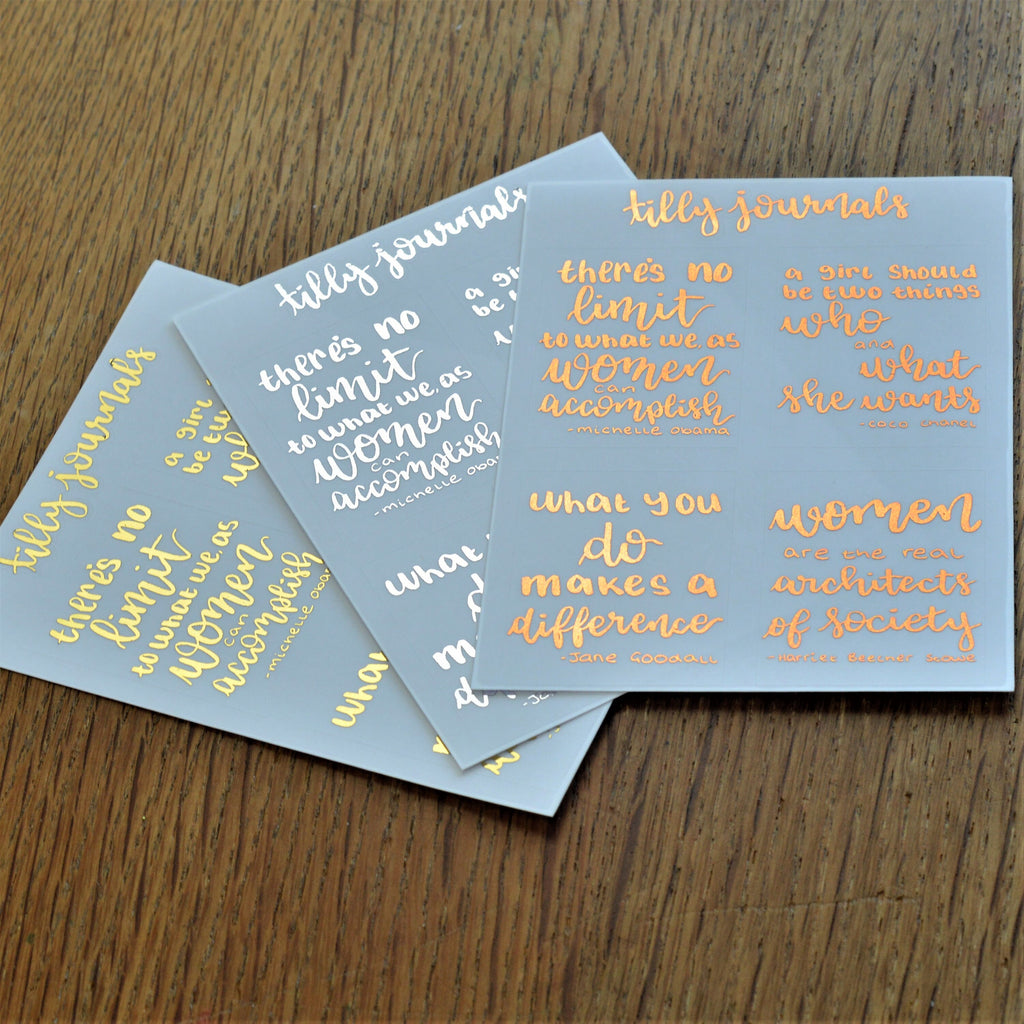 tilly journals
there's no
limit
to what we, as
women
can
accomplish
-michelle obama
a girl
be two
tilly journals
there's no
limit
to what we, as
women
can
accomplish
-michelle obama
a girl
be
what
tilly journals
there's no
limit
to what we, as
women
can
accomplish
-michelle obama
a girl should
be two things
who
and
what
she wants
-coco chanel
what you
do
makes a
difference
-Jane Goodall
women
are the real
architects
of society
-Harriet Beecher Stowe